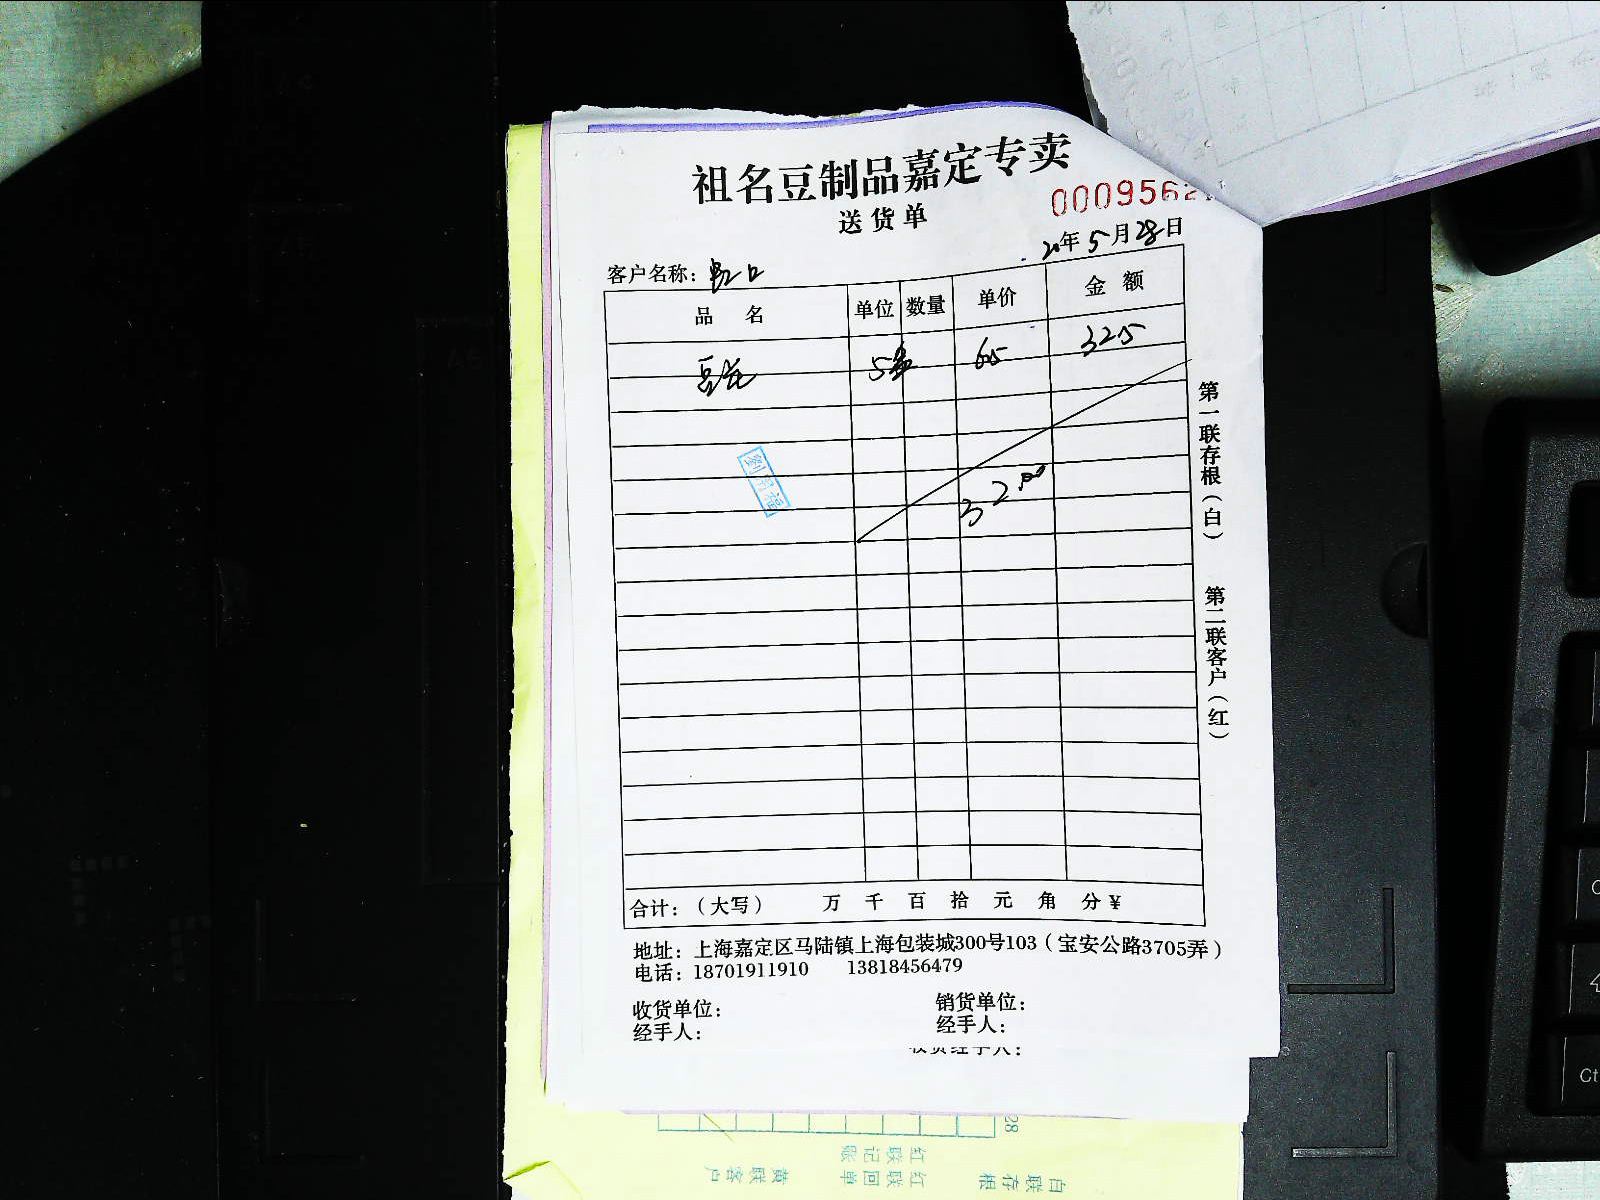 祖名豆制品嘉定专卖
送货单
000956
20年5月28日
客户名称：虹口
品名 单位 数量 单价 金额
豆花 5 65 325
32.00
第一联存根（白）
第二联客户（红）
合计：（大写） 万 千 百 拾 元 角 分 ¥
地址：上海嘉定区马陆镇上海包装城300号103（宝安公路3705弄）
电话：18701911910 13818456479
收货单位： 销货单位：
经手人： 经手人：
收货经手人：
28
白联存根 红联回单 黄联客户
红联记账